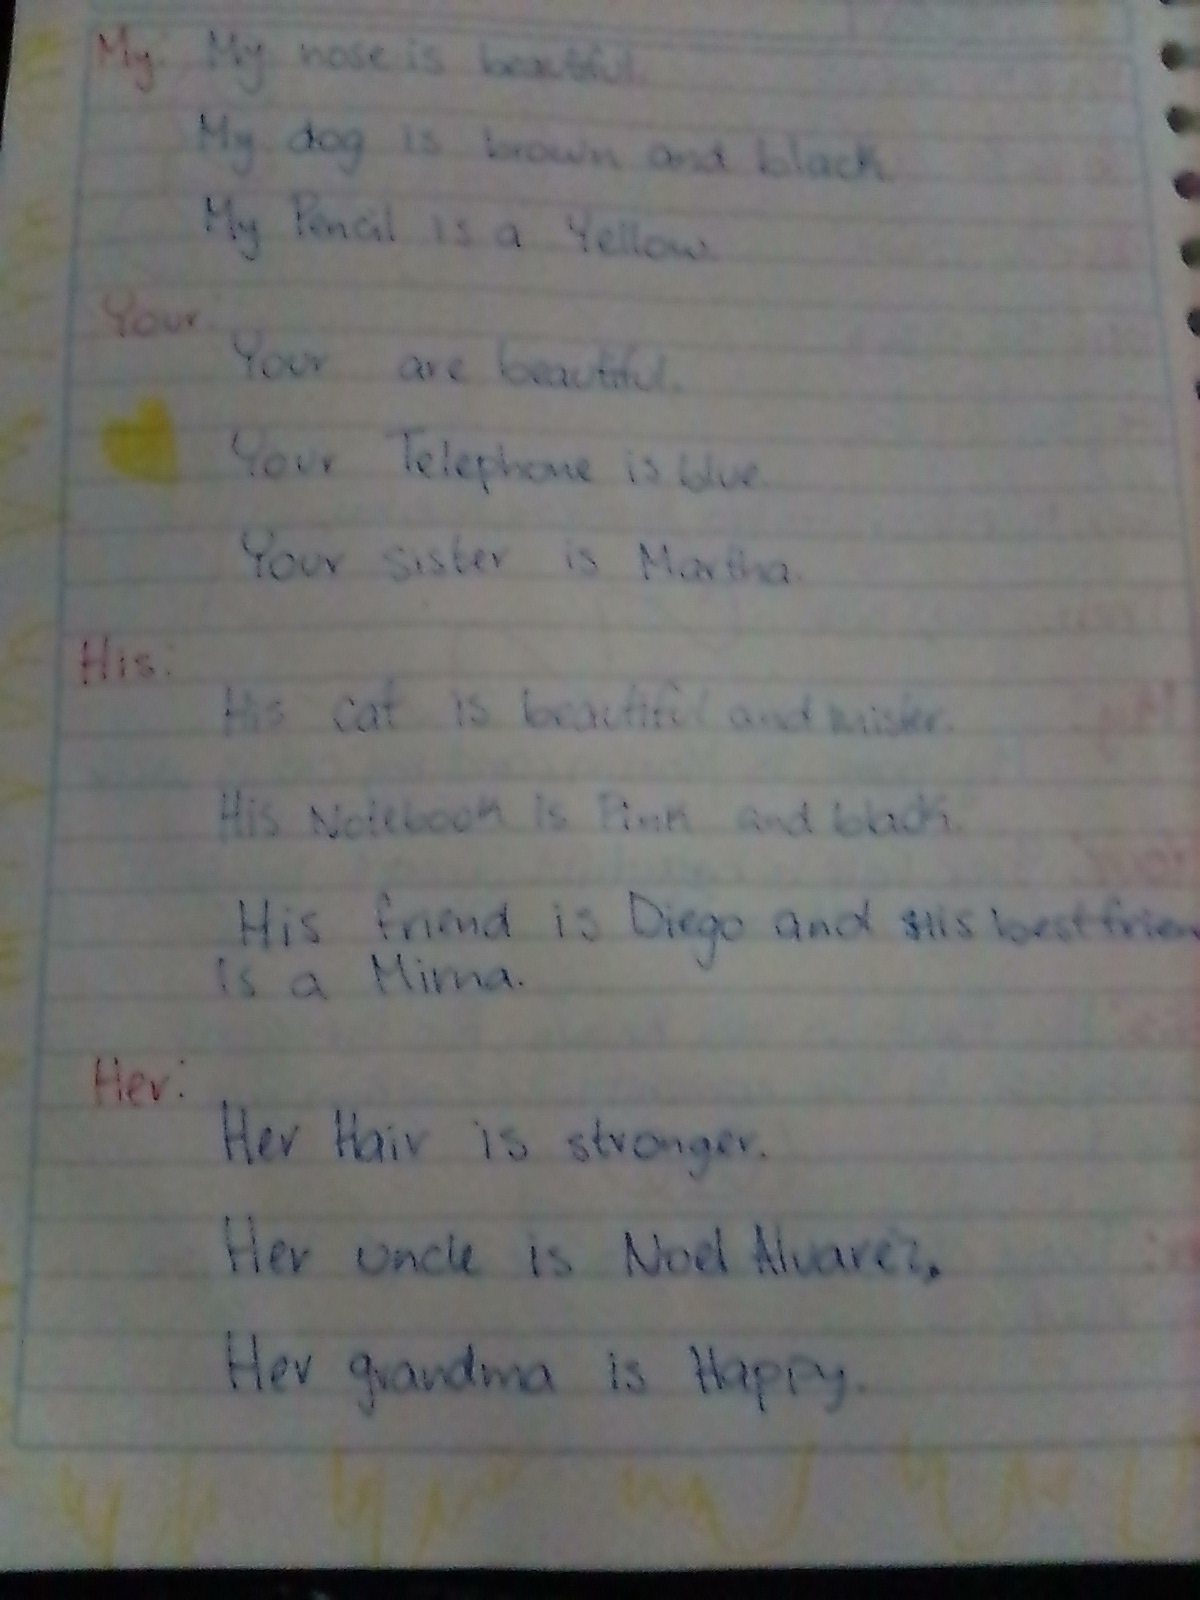 My: My nose is beautiful.
My dog is brown and black.
My Pencil is a Yellow.
Your:
Your are beautiful.
Your Telephone is blue.
Your sister is Martha.
His:
His cat is beautiful and mister.
His Notebook is Pink and black.
His friend is Diego and His best frien
is a Mirna.
Her:
Her Hair is stronger.
Her uncle is Noel Alvarez.
Her grandma is Happy.